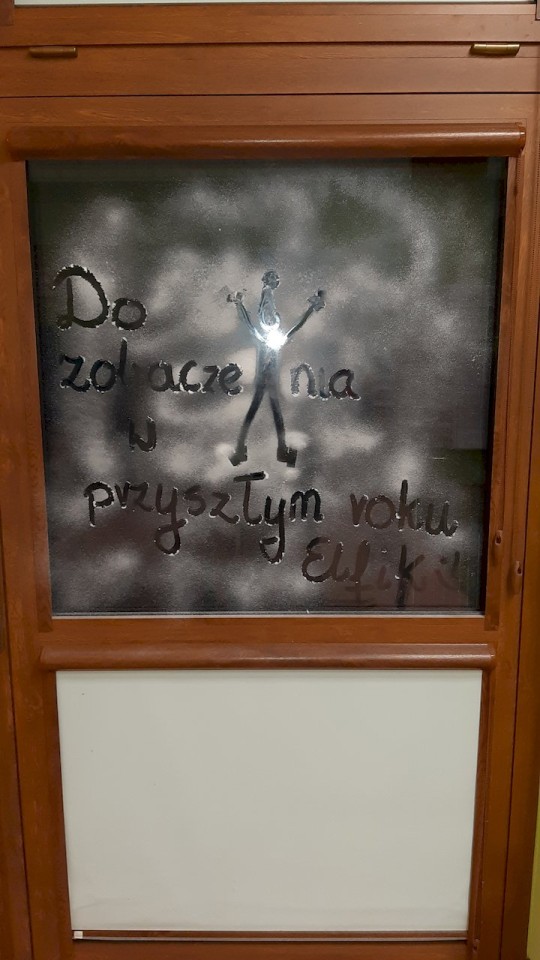 Do
zobaczenia
w
przyszłym roku
Elfiki!